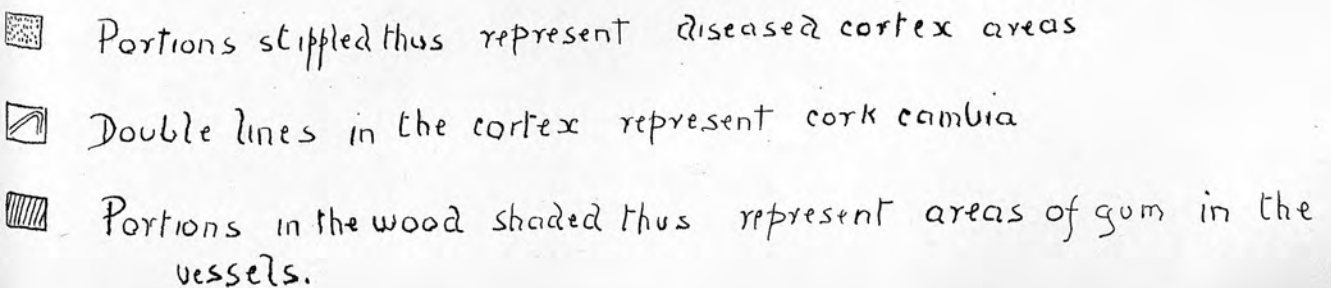 Portions stippled thus represent diseased cortex areas
Double lines in the cortex represent cork cambia
Portions in the wood shaded thus represent areas of gum in the
vessels.